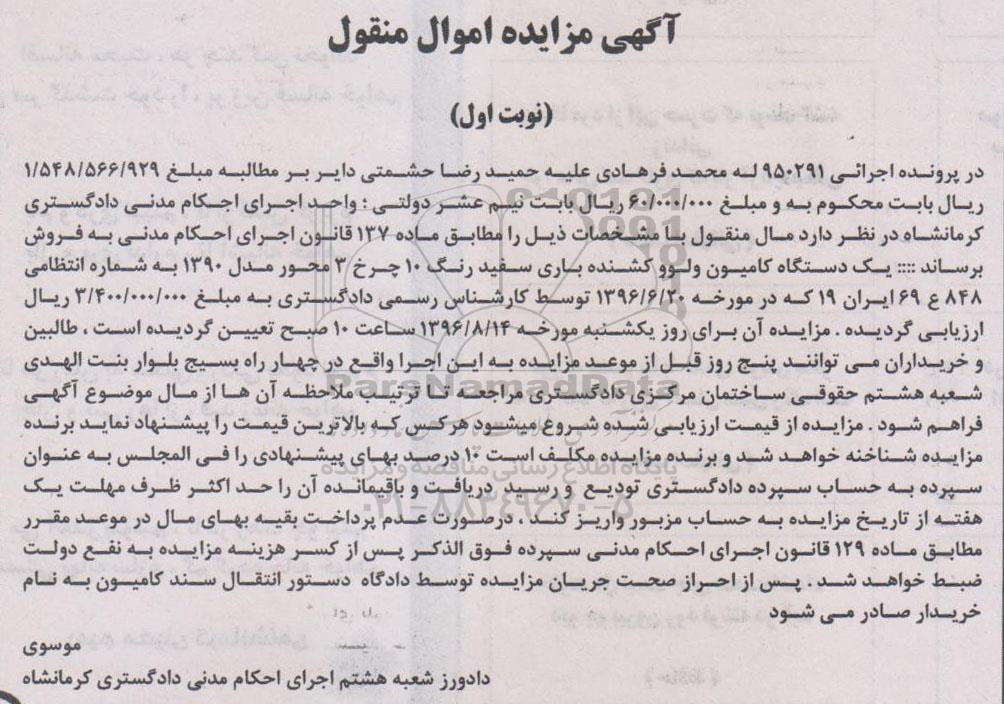 آگهی مزایده اموال منقول
(نوبت اول)
در پرونده اجرائی ۹۵۰۲۹۱ لـه محمـد فرهـادی علیـه حمیـد رضـا حشمتـی دایـر بـر مطالبـه مبلـغ ۱/۵۴۸/۵۶۶/۹۲۹
ریـال بابت محکـوم بـه و مبلـغ ۶۰/۰۰۰/۰۰۰ ریـال بابت نیـم عشـر دولتـی ؛ واحـد اجـرای احکـام مدنـی دادگستـری
کرمانشـاه در نظـر دارد مـال منقـول بـا مشخصـات ذیـل را مطابـق مـاده ۱۳۷ قانـون اجـرای احکـام مدنـی بـه فـروش
برسـاند :::: یـک دستـگاه کامیـون ولـوو کشـنده بـاری سـفید رنـگ ۱۰ چـرخ ۳ محـور مـدل ۱۳۹۰ بـه شـماره انتظامـی
۸۴۸ ع ۶۹ ایـران ۱۹ کـه در مورخـه ۱۳۹۶/۶/۲۰ توسط کارشناس رسمی دادگستری بـه مبلـغ ۳/۴۰۰/۰۰۰/۰۰۰ ریـال
ارزیابـی گردیـده . مزایـده آن بـرای روز یکشـنبه مورخـه ۱۳۹۶/۸/۱۴ سـاعت ۱۰ صبـح تعییـن گردیـده اسـت ، طالبیـن
و خریـداران مـی تواننـد پنـج روز قبـل از موعـد مزایـده بـه ایـن اجـرا واقـع در چهـار راه بسیـج بلـوار بنـت الهـدی
شـعبه هشـتم حقوقـی سـاختمان مرکـزی دادگستـری مراجعـه تـا ترتیـب ملاحظـه آن هـا از مـال موضـوع آگهـی
فراهـم شـود . مزایـده از قیمـت ارزیابـی شـده شـروع میشـود هرکـس کـه بالاتریـن قیمـت را پیشـنهاد نمایـد برنـده
مزایـده شـناخته خواهـد شـد و برنـده مزایـده مکلـف اسـت ۱۰ درصـد بهـای پیشـنهادی را فـی المجلـس بـه عنـوان
سـپرده بـه حسـاب سـپرده دادگستـری تودیـع و رسـید دریافـت و باقیمانـده آن را حـد اکثـر ظـرف مهلـت یـک
هفتـه از تاریـخ مزایـده بـه حسـاب مزبـور واریـز کنـد ، درصـورت عـدم پرداخـت بقیـه بهـای مـال در موعـد مقـرر
مطابـق مـاده ۱۲۹ قانـون اجـرای احکـام مدنـی سـپرده فـوق الذکـر پـس از کسـر هزینـه مزایـده بـه نفـع دولـت
ضبـط خواهـد شـد ، پـس از احـراز صحـت جریـان مزایـده توسـط دادگاه دسـتور انتقـال سـند کامیـون بـه نـام
خریـدار صـادر مـی شـود
موسوی
دادورز شعبه هشتم اجرای احکام مدنی دادگستری کرمانشاه
ParsNamadData
پایگاه اطلاع رسانی مناقصه و مزایده
۰۲۱-۸۸۳۴۹۶۷۰-۵